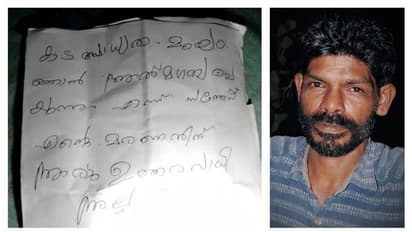 കട ബാധ്യത മൂലം
ഞാൻ ആത്മഹത്യ
എന്റെ മരണത്തിന്
ആരും ഉത്തരവാദി
അല്ല